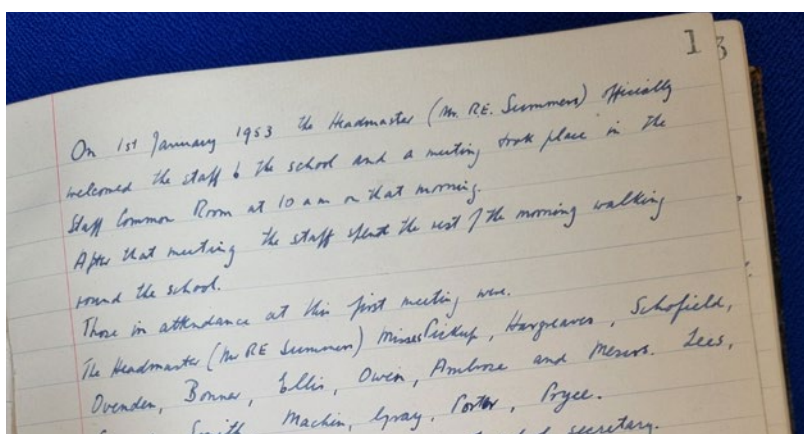 1 3
On 1st January 1953 the Headmaster (Mr. R.E. Summers) officially
welcomed the staff to the school and a meeting took place in the
Staff Common Room at 10 a m on that morning.
After that meeting the staff spent the rest of the morning walking
round the school.
Those in attendance at this first meeting were.
The Headmaster (Mr RE Summers) Misses Pickup, Hargreaves, Schofield,
Ovenden, Bonner, Ellis, Owen, Ambrose and Messrs. Lees,
Smith, Machin, Gray, Porter, Pryce.
secretary.